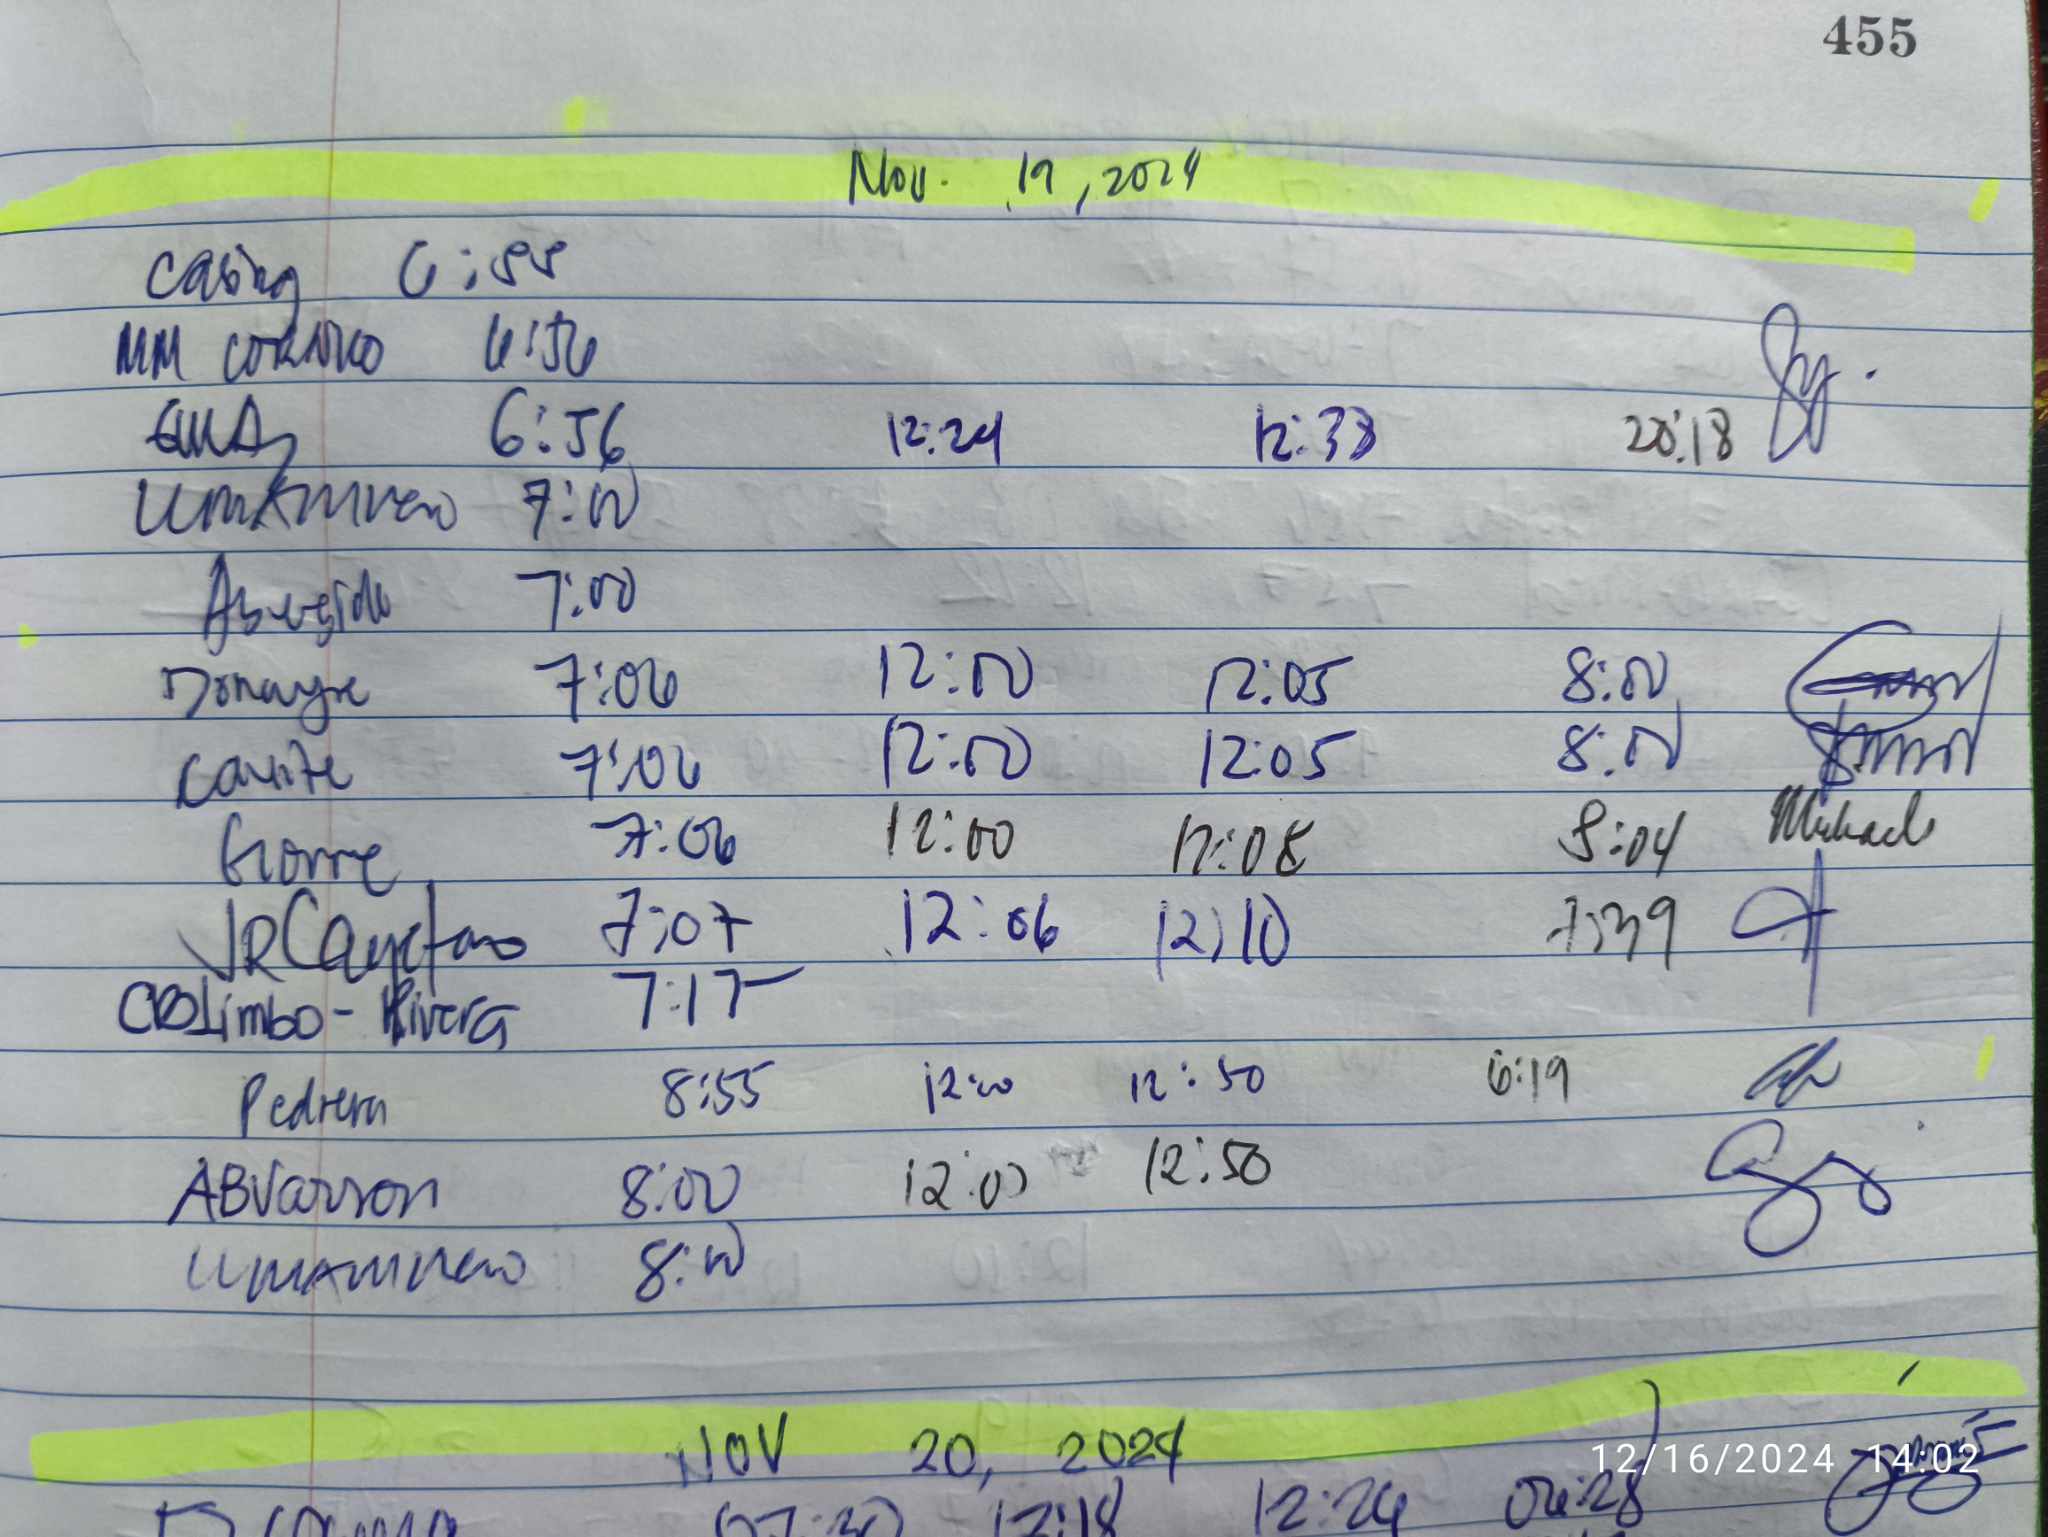 455
Nov. 19, 2024
Casing 6:55
MM 6:56
6:56 12:24 12:33 20:18
7:00
7:00
Donayre 7:06 12:00 12:05 8:00
Cavite 7:06 12:00 12:05 8:00
Gorre 7:06 12:00 12:08 8:04 Michael
JRCayetano 7:07 12:06 12:10 7:39
CBOLimbo - Rivera 7:17
Pedrera 8:55 12:00 12:50 6:19
ABVarron 8:00 12:00 12:50
8:00
NOV 20, 2024
12/16/2024 14:02
07:30 12:18 12:24 06:28